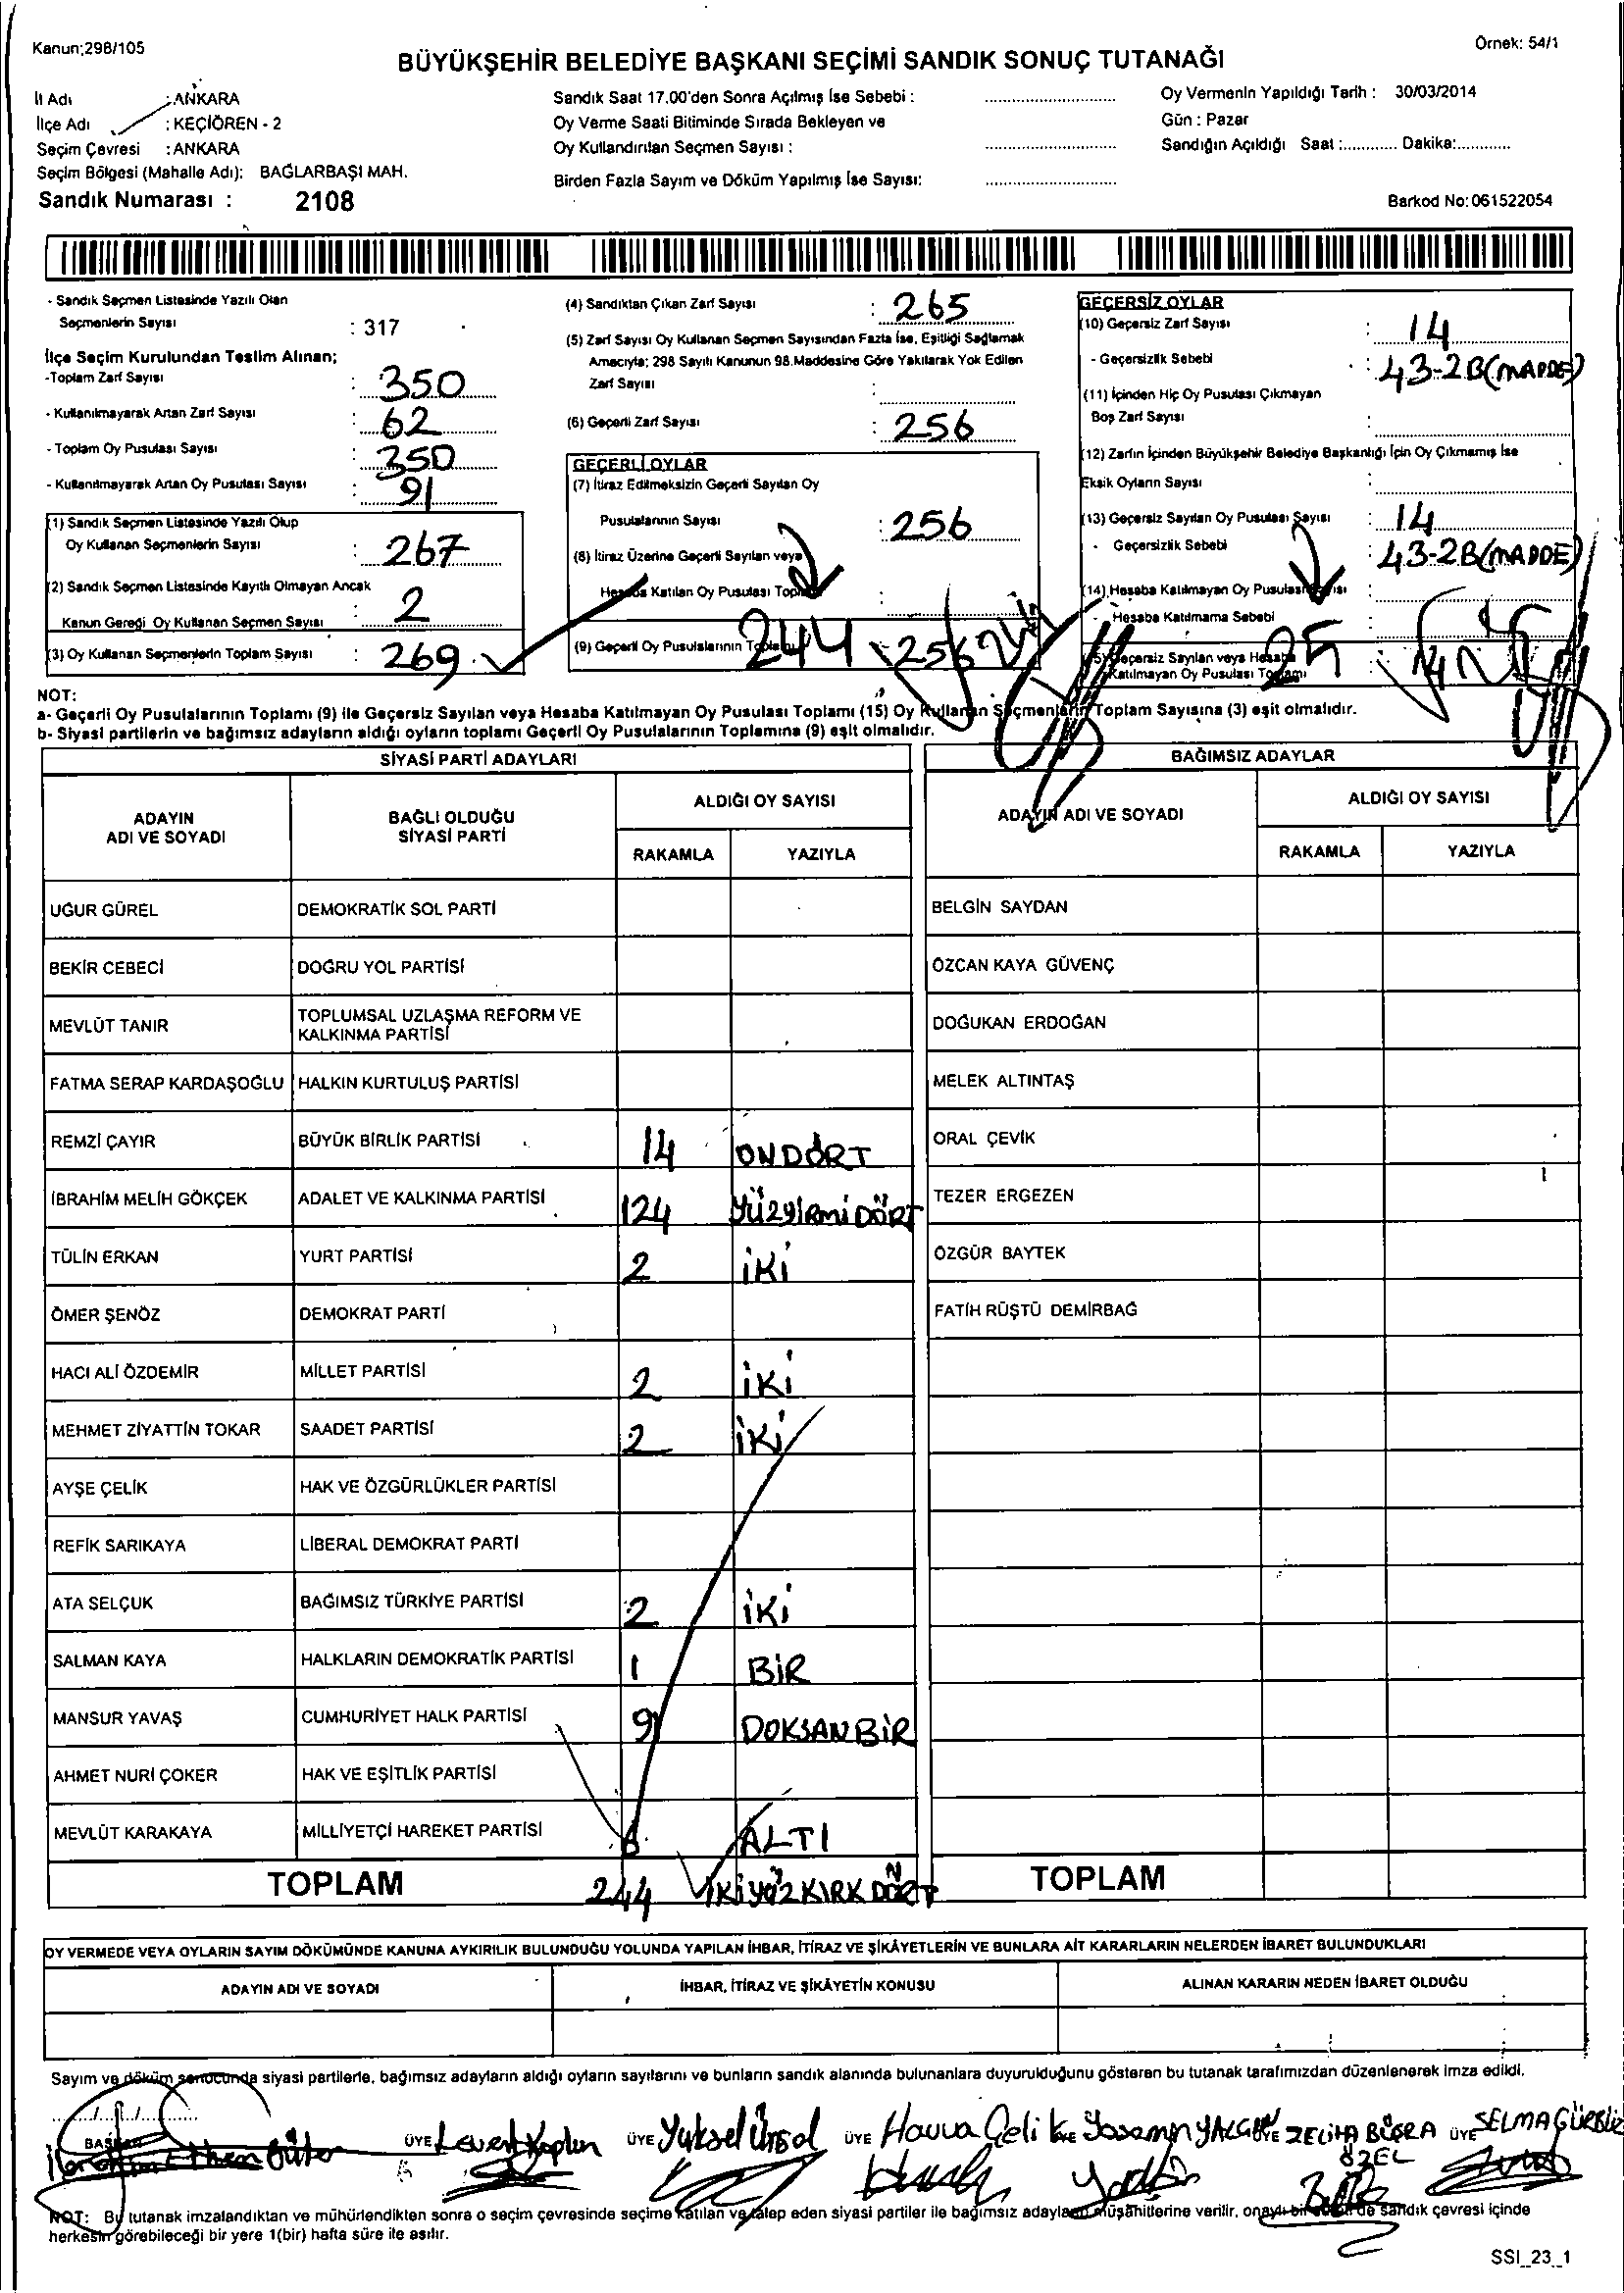 Kanun;298/105
Örnek: 54/1
BÜYÜKŞEHİR BELEDİYE BAŞKANI SEÇİMİ SANDIK SONUÇ TUTANAĞI
İl Adı : ANKARA
İlçe Adı : KEÇİÖREN - 2
Seçim Çevresi : ANKARA
Seçim Bölgesi (Mahalle Adı): BAĞLARBAŞI MAH.
Sandık Numarası : 2108
Sandık Saat 17.00'den Sonra Açılmış İse Sebebi :
Oy Verme Saati Bitiminde Sırada Bekleyen ve
Oy Kullandırılan Seçmen Sayısı :
Birden Fazla Sayım ve Döküm Yapılmış İse Sayısı:
Oy Vermenin Yapıldığı Tarih : 30/03/2014
Gün : Pazar
Sandığın Açıldığı Saat :............ Dakika:............
Barkod No:061522054
- Sandık Seçmen Listesinde Yazılı Olan
Seçmenlerin Sayısı : 317
İlçe Seçim Kurulundan Teslim Alınan;
-Toplam Zarf Sayısı : 350
- Kullanılmayarak Artan Zarf Sayısı : 62
- Toplam Oy Pusulası Sayısı : 350
- Kullanılmayarak Artan Oy Pusulası Sayısı : 91
(1) Sandık Seçmen Listesinde Yazılı Olup
Oy Kullanan Seçmenlerin Sayısı : 267
(2) Sandık Seçmen Listesinde Kayıtlı Olmayan Ancak
Kanun Gereği Oy Kullanan Seçmen Sayısı : 2
(3) Oy Kullanan Seçmenlerin Toplam Sayısı : 269
(4) Sandıktan Çıkan Zarf Sayısı : 265
(5) Zarf Sayısı Oy Kullanan Seçmen Sayısından Fazla İse, Eşitliği Sağlamak
Amacıyla; 298 Sayılı Kanunun 98.Maddesine Göre Yakılarak Yok Edilen
Zarf Sayısı :
(6) Geçerli Zarf Sayısı : 256
GEÇERLİ OYLAR
(7) İtiraz Edilmeksizin Geçerli Sayılan Oy
Pusulalarının Sayısı : 256
(8) İtiraz Üzerine Geçerli Sayılan veya
Hesaba Katılan Oy Pusulası Toplamı :
(9) Geçerli Oy Pusulalarının Toplamı 244 256 244
GEÇERSİZ OYLAR
(10) Geçersiz Zarf Sayısı : 14
- Geçersizlik Sebebi : 43-2B(MADDE)
(11) İçinden Hiç Oy Pusulası Çıkmayan
Boş Zarf Sayısı :
(12) Zarfın İçinden Büyükşehir Belediye Başkanlığı İçin Oy Çıkmamış İse
Eksik Oyların Sayısı :
(13) Geçersiz Sayılan Oy Pusulası Sayısı : 14
- Geçersizlik Sebebi : 43-2B(MADDE)
(14) Hesaba Katılmayan Oy Pusulası Sayısı :
Hesaba Katılmama Sebebi :
(15) Geçersiz Sayılan veya Hesaba
Katılmayan Oy Pusulası Toplamı 25 : 14
NOT:
a- Geçerli Oy Pusulalarının Toplamı (9) ile Geçersiz Sayılan veya Hesaba Katılmayan Oy Pusulası Toplamı (15) Oy Kullanan Seçmenlerin Toplam Sayısına (3) eşit olmalıdır.
b- Siyasi partilerin ve bağımsız adayların aldığı oyların toplamı Geçerli Oy Pusulalarının Toplamına (9) eşit olmalıdır.
SİYASİ PARTİ ADAYLARI
BAĞIMSIZ ADAYLAR
ADAYIN ADI VE SOYADI
BAĞLI OLDUĞU SİYASİ PARTİ
ALDIĞI OY SAYISI
RAKAMLA YAZIYLA
ADAYIN ADI VE SOYADI
ALDIĞI OY SAYISI
RAKAMLA YAZIYLA
UĞUR GÜREL DEMOKRATİK SOL PARTİ BELGİN SAYDAN
BEKİR CEBECİ DOĞRU YOL PARTİSİ ÖZCAN KAYA GÜVENÇ
MEVLÜT TANIR TOPLUMSAL UZLAŞMA REFORM VE KALKINMA PARTİSİ DOĞUKAN ERDOĞAN
FATMA SERAP KARDAŞOĞLU HALKIN KURTULUŞ PARTİSİ MELEK ALTINTAŞ
REMZİ ÇAYIR BÜYÜK BİRLİK PARTİSİ 14 ONDÖRT ORAL ÇEVİK
İBRAHİM MELİH GÖKÇEK ADALET VE KALKINMA PARTİSİ 124 YÜZYİRMİDÖRT TEZER ERGEZEN
TÜLİN ERKAN YURT PARTİSİ 2 İKİ ÖZGÜR BAYTEK
ÖMER ŞENÖZ DEMOKRAT PARTİ FATİH RÜŞTÜ DEMİRBAĞ
HACI ALİ ÖZDEMİR MİLLET PARTİSİ 2 İKİ
MEHMET ZİYATTİN TOKAR SAADET PARTİSİ 2 İKİ
AYŞE ÇELİK HAK VE ÖZGÜRLÜKLER PARTİSİ
REFİK SARIKAYA LİBERAL DEMOKRAT PARTİ
ATA SELÇUK BAĞIMSIZ TÜRKİYE PARTİSİ 2 İKİ
SALMAN KAYA HALKLARIN DEMOKRATİK PARTİSİ 1 BİR
MANSUR YAVAŞ CUMHURİYET HALK PARTİSİ 91 DOKSANBİR
AHMET NURİ ÇOKER HAK VE EŞİTLİK PARTİSİ
MEVLÜT KARAKAYA MİLLİYETÇİ HAREKET PARTİSİ 6 ALTI
TOPLAM 244 İKİYÜZKIRKDÖRT TOPLAM
OY VERMEDE VEYA OYLARIN SAYIM DÖKÜMÜNDE KANUNA AYKIRILIK BULUNDUĞU YOLUNDA YAPILAN İHBAR, İTİRAZ VE ŞİKÂYETLERİN VE BUNLARA AİT KARARLARIN NELERDEN İBARET BULUNDUKLARI
ADAYIN ADI VE SOYADI İHBAR, İTİRAZ VE ŞİKÂYETİN KONUSU ALINAN KARARIN NEDEN İBARET OLDUĞU
Sayım ve döküm sonucunda siyasi partilerle, bağımsız adayların aldığı oyların sayılarını ve bunların sandık alanında bulunanlara duyurulduğunu gösteren bu tutanak tarafımızdan düzenlenerek imza edildi.
BAŞKAN ÜYE Levent Kaplan ÜYE Yüksel Ünsal ÜYE Havva Çelik ÜYE Yasemin YALÇIN ÜYE ZELİHA BÜŞRA ÖZEL ÜYE SELMA GÜRBÜZ
İbrahim Ethem Güler
NOT: Bu tutanak imzalandıktan ve mühürlendikten sonra o seçim çevresinde seçime katılan ve talep eden siyasi partiler ile bağımsız adayların müşahitlerine verilir, onaylı bir sureti de sandık çevresi içinde
herkesin görebileceği bir yere 1(bir) hafta süre ile asılır.
SSI_23_1